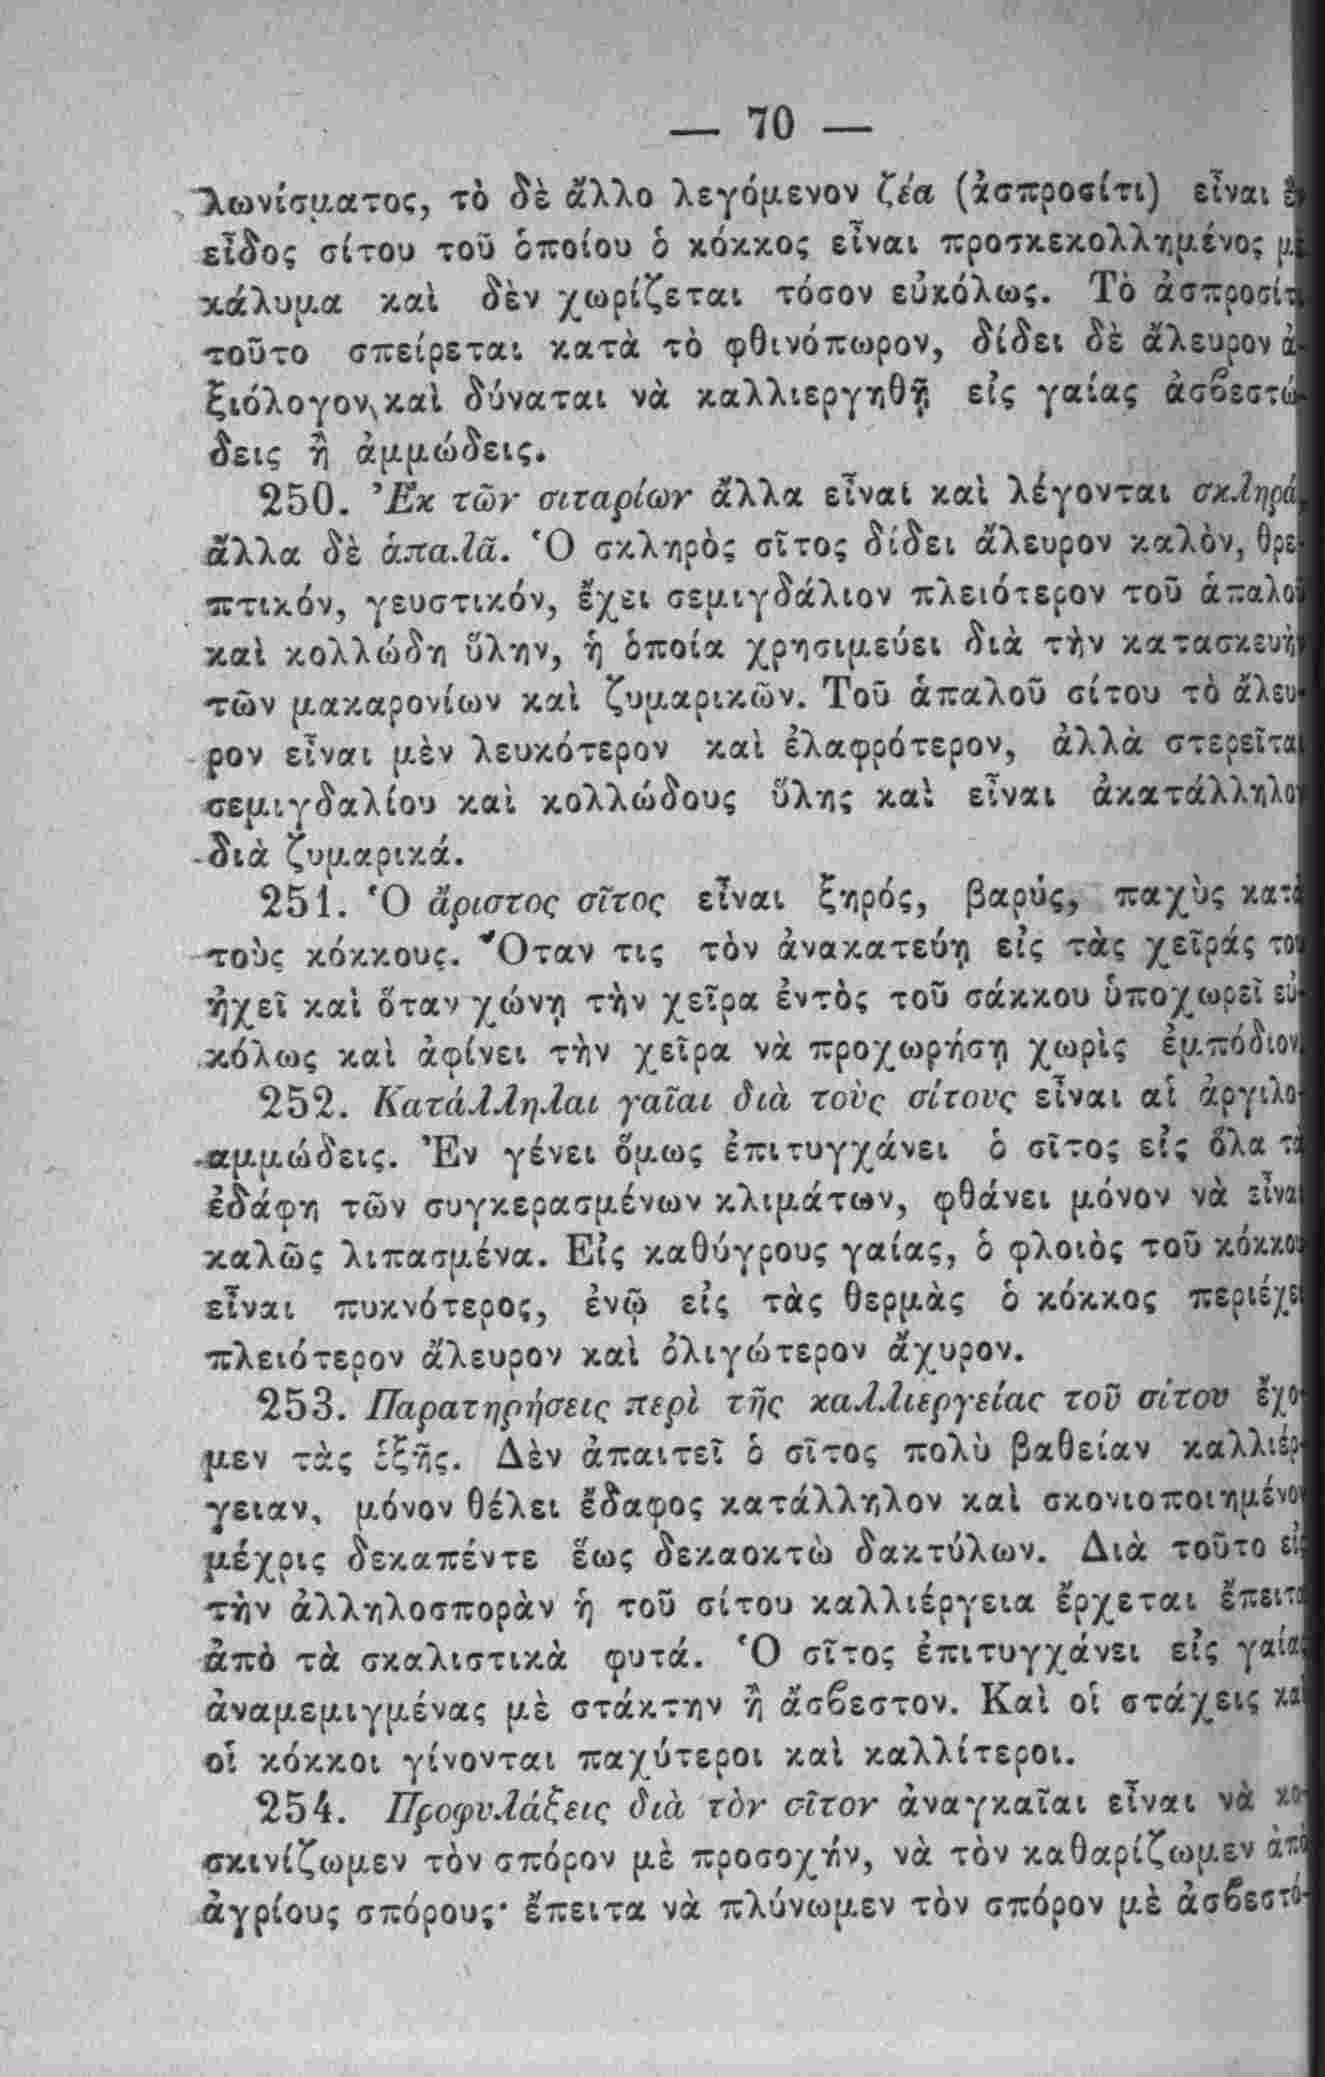 — 70 —
λωνίσματος, τὸ δὲ ἄλλο λεγόμενον ζέα (ἀσπροσίτι) εἶναι
εἶδος σίτου τοῦ ὁποίου ὁ κόκκος εἶναι προσκεκολλημένος μὲ
κάλυμα καὶ δὲν χωρίζεται τόσον εὐκόλως. Τὸ ἀσπροσίτι
τοῦτο σπείρεται κατὰ τὸ φθινόπωρον, δίδει δὲ ἄλευρον ἀ-
ξιόλογον, καὶ δύναται νὰ καλλιεργηθῇ εἰς γαίας ἀσβεστώ-
δεις ἢ ἀμμώδεις.
250. Ἐκ τῶν σιταρίων ἄλλα εἶναι καὶ λέγονται σκληρά,
ἄλλα δὲ ἁπαλᾶ. Ὁ σκληρὸς σῖτος δίδει ἄλευρον καλὸν, θρε-
πτικόν, γευστικόν, ἔχει σεμιγδάλιον πλειότερον τοῦ ἁπαλοῦ
καὶ κολλώδη ὕλην, ἡ ὁποία χρησιμεύει διὰ τὴν κατασκευὴν
τῶν μακαρονίων καὶ ζυμαρικῶν. Τοῦ ἁπαλοῦ σίτου τὸ ἄλευ-
ρον εἶναι μὲν λευκότερον καὶ ἐλαφρότερον, ἀλλὰ στερεῖται
σεμιγδαλίου καὶ κολλώδους ὕλης καὶ εἶναι ἀκατάλληλον
διὰ ζυμαρικά.
251. Ὁ ἄριστος σῖτος εἶναι ξηρός, βαρύς, παχὺς κατὰ
τοὺς κόκκους. Ὅταν τις τὸν ἀνακατεύῃ εἰς τὰς χεῖράς του
ἠχεῖ καὶ ὅταν χώνῃ τὴν χεῖρα ἐντὸς τοῦ σάκκου ὑποχωρεῖ εὐ-
κόλως καὶ ἀφίνει τὴν χεῖρα νὰ προχωρήσῃ χωρὶς ἐμπόδιον.
252. Κατάλληλαι γαῖαι διὰ τοὺς σίτους εἶναι αἱ ἀργιλο-
αμμώδεις. Ἐν γένει ὅμως ἐπιτυγχάνει ὁ σῖτος εἰς ὅλα τὰ
ἐδάφη τῶν συγκερασμένων κλιμάτων, φθάνει μόνον νὰ εἶναι
καλῶς λιπασμένα. Εἰς καθύγρους γαίας, ὁ φλοιὸς τοῦ κόκκου
εἶναι πυκνότερος, ἐνῷ εἰς τὰς θερμὰς ὁ κόκκος περιέχει
πλειότερον ἄλευρον καὶ ὀλιγώτερον ἄχυρον.
253. Παρατηρήσεις περὶ τῆς καλλιεργείας τοῦ σίτου ἔχο-
μεν τὰς ἑξῆς. Δὲν ἀπαιτεῖ ὁ σῖτος πολὺ βαθεῖαν καλλιέρ-
γειαν, μόνον θέλει ἔδαφος κατάλληλον καὶ σκονιοποιημένον
μέχρις δεκαπέντε ἕως δεκαοκτὼ δακτύλων. Διὰ τοῦτο εἰς
τὴν ἀλληλοσπορὰν ἡ τοῦ σίτου καλλιέργεια ἔρχεται ἔπειτα
ἀπὸ τὰ σκαλιστικὰ φυτά. Ὁ σῖτος ἐπιτυγχάνει εἰς γαίας
ἀναμεμιγμένας μὲ στάκτην ἢ ἄσβεστον. Καὶ οἱ στάχεις καὶ
οἱ κόκκοι γίνονται παχύτεροι καὶ καλλίτεροι.
254. Προφυλάξεις διὰ τὸν σῖτον ἀναγκαῖαι εἶναι νὰ κο-
σκινίζωμεν τὸν σπόρον μὲ προσοχήν, νὰ τὸν καθαρίζωμεν ἀπὸ
ἀγρίους σπόρους· ἔπειτα νὰ πλύνωμεν τὸν σπόρον μὲ ἀσβεστό-